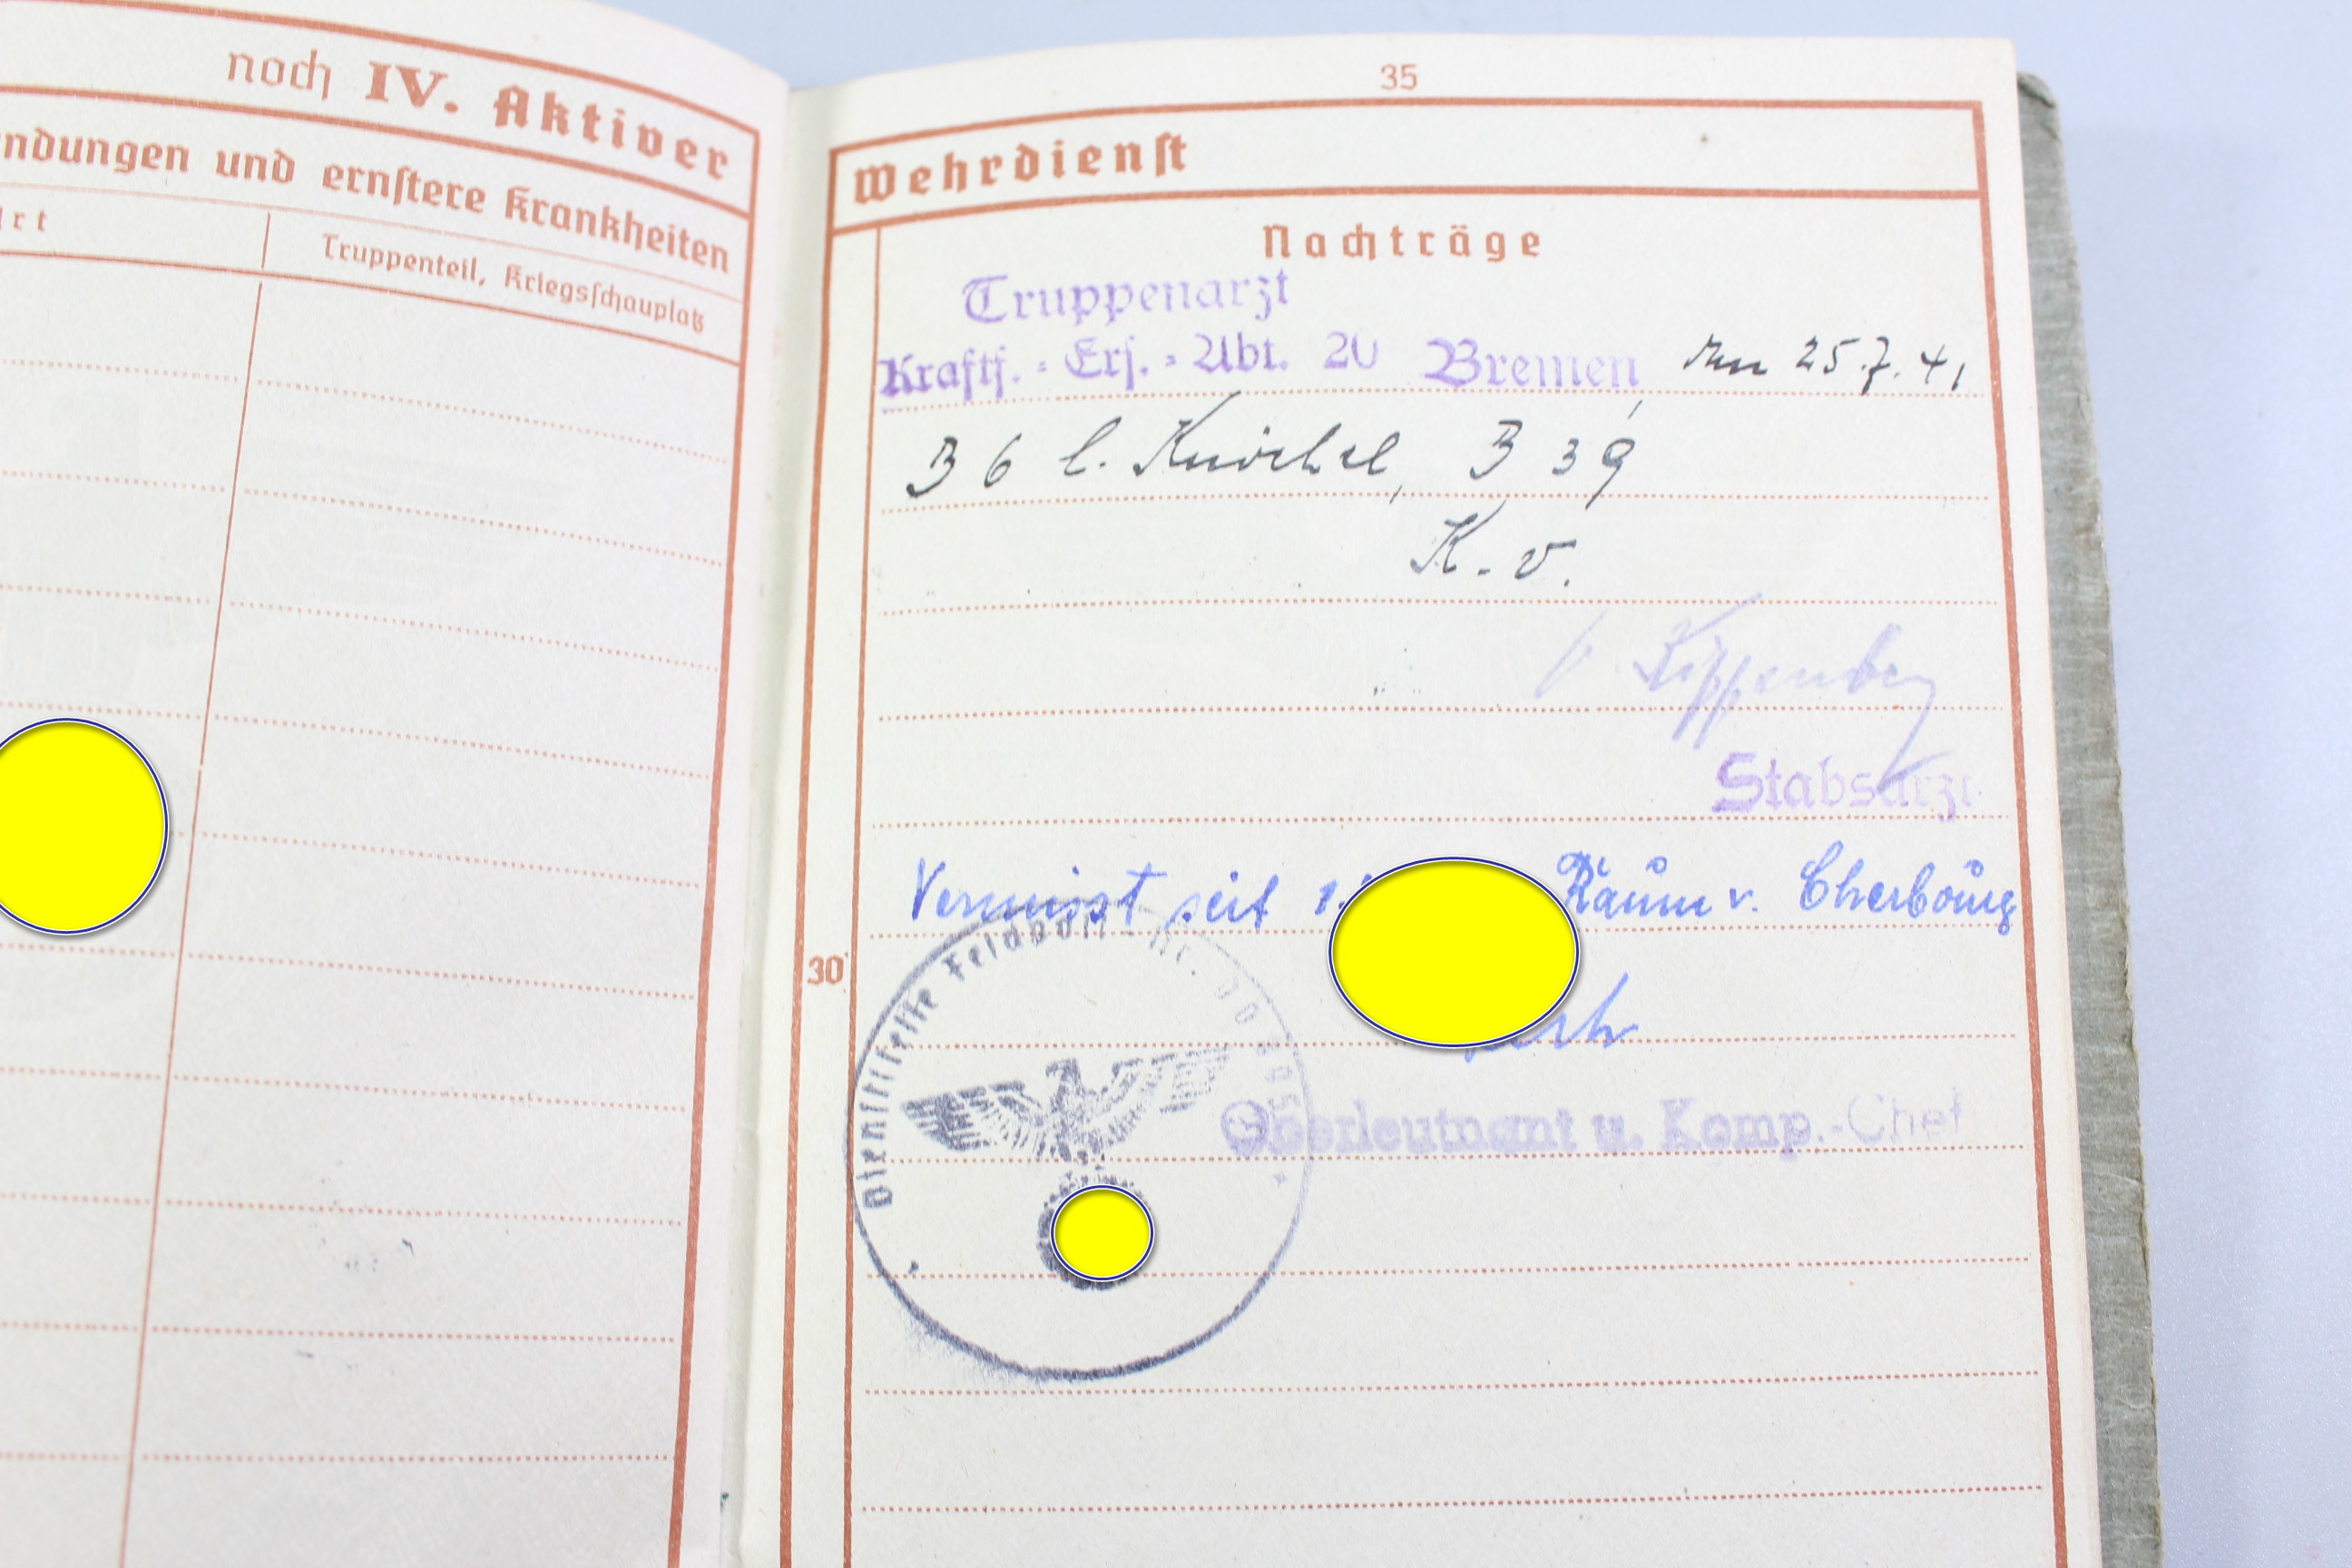 noch IV. Aktiver
ndungen und ernstere Krankheiten
rt
Truppenteil, Kriegsschauplatz
35
Wehrdienst
Nachträge
Truppenarzt
Kraftf.-Ers.-Abt. 20 Bremen den 25.7.41
B 6 l. Knöchel, B 39
K.v.
Stabsarzt
Vermisst seit 1. Raum v. Cherbourg
30
Dienststelle Feldpost-Nr.
Oberleutnant u. Komp.-Chef